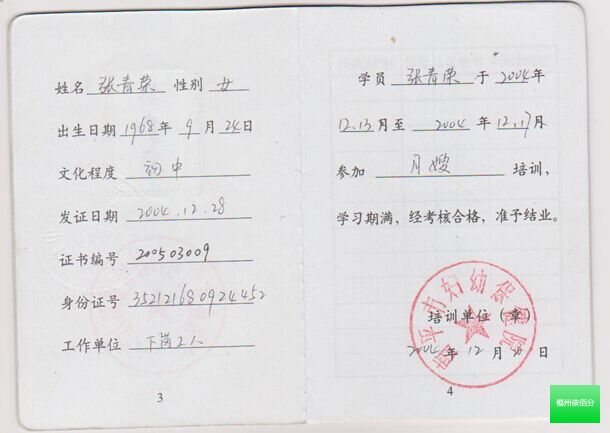 姓名 张青荣 性别 女
出生日期 1968 年 9 月 24 日
文化程度 初中
发证日期 2004.12.28
证书编号 200503009
身份证号 352121680924452
工作单位 下岗工人
3
学员 张青荣 于 2004 年
12.13 月至 2004 年 12.17 月
参加 月嫂 培训，
学习期满，经考核合格，准予结业。
南平市妇幼保健院
培训单位（章）
2004 年 12 月 日
4
福州依佰分